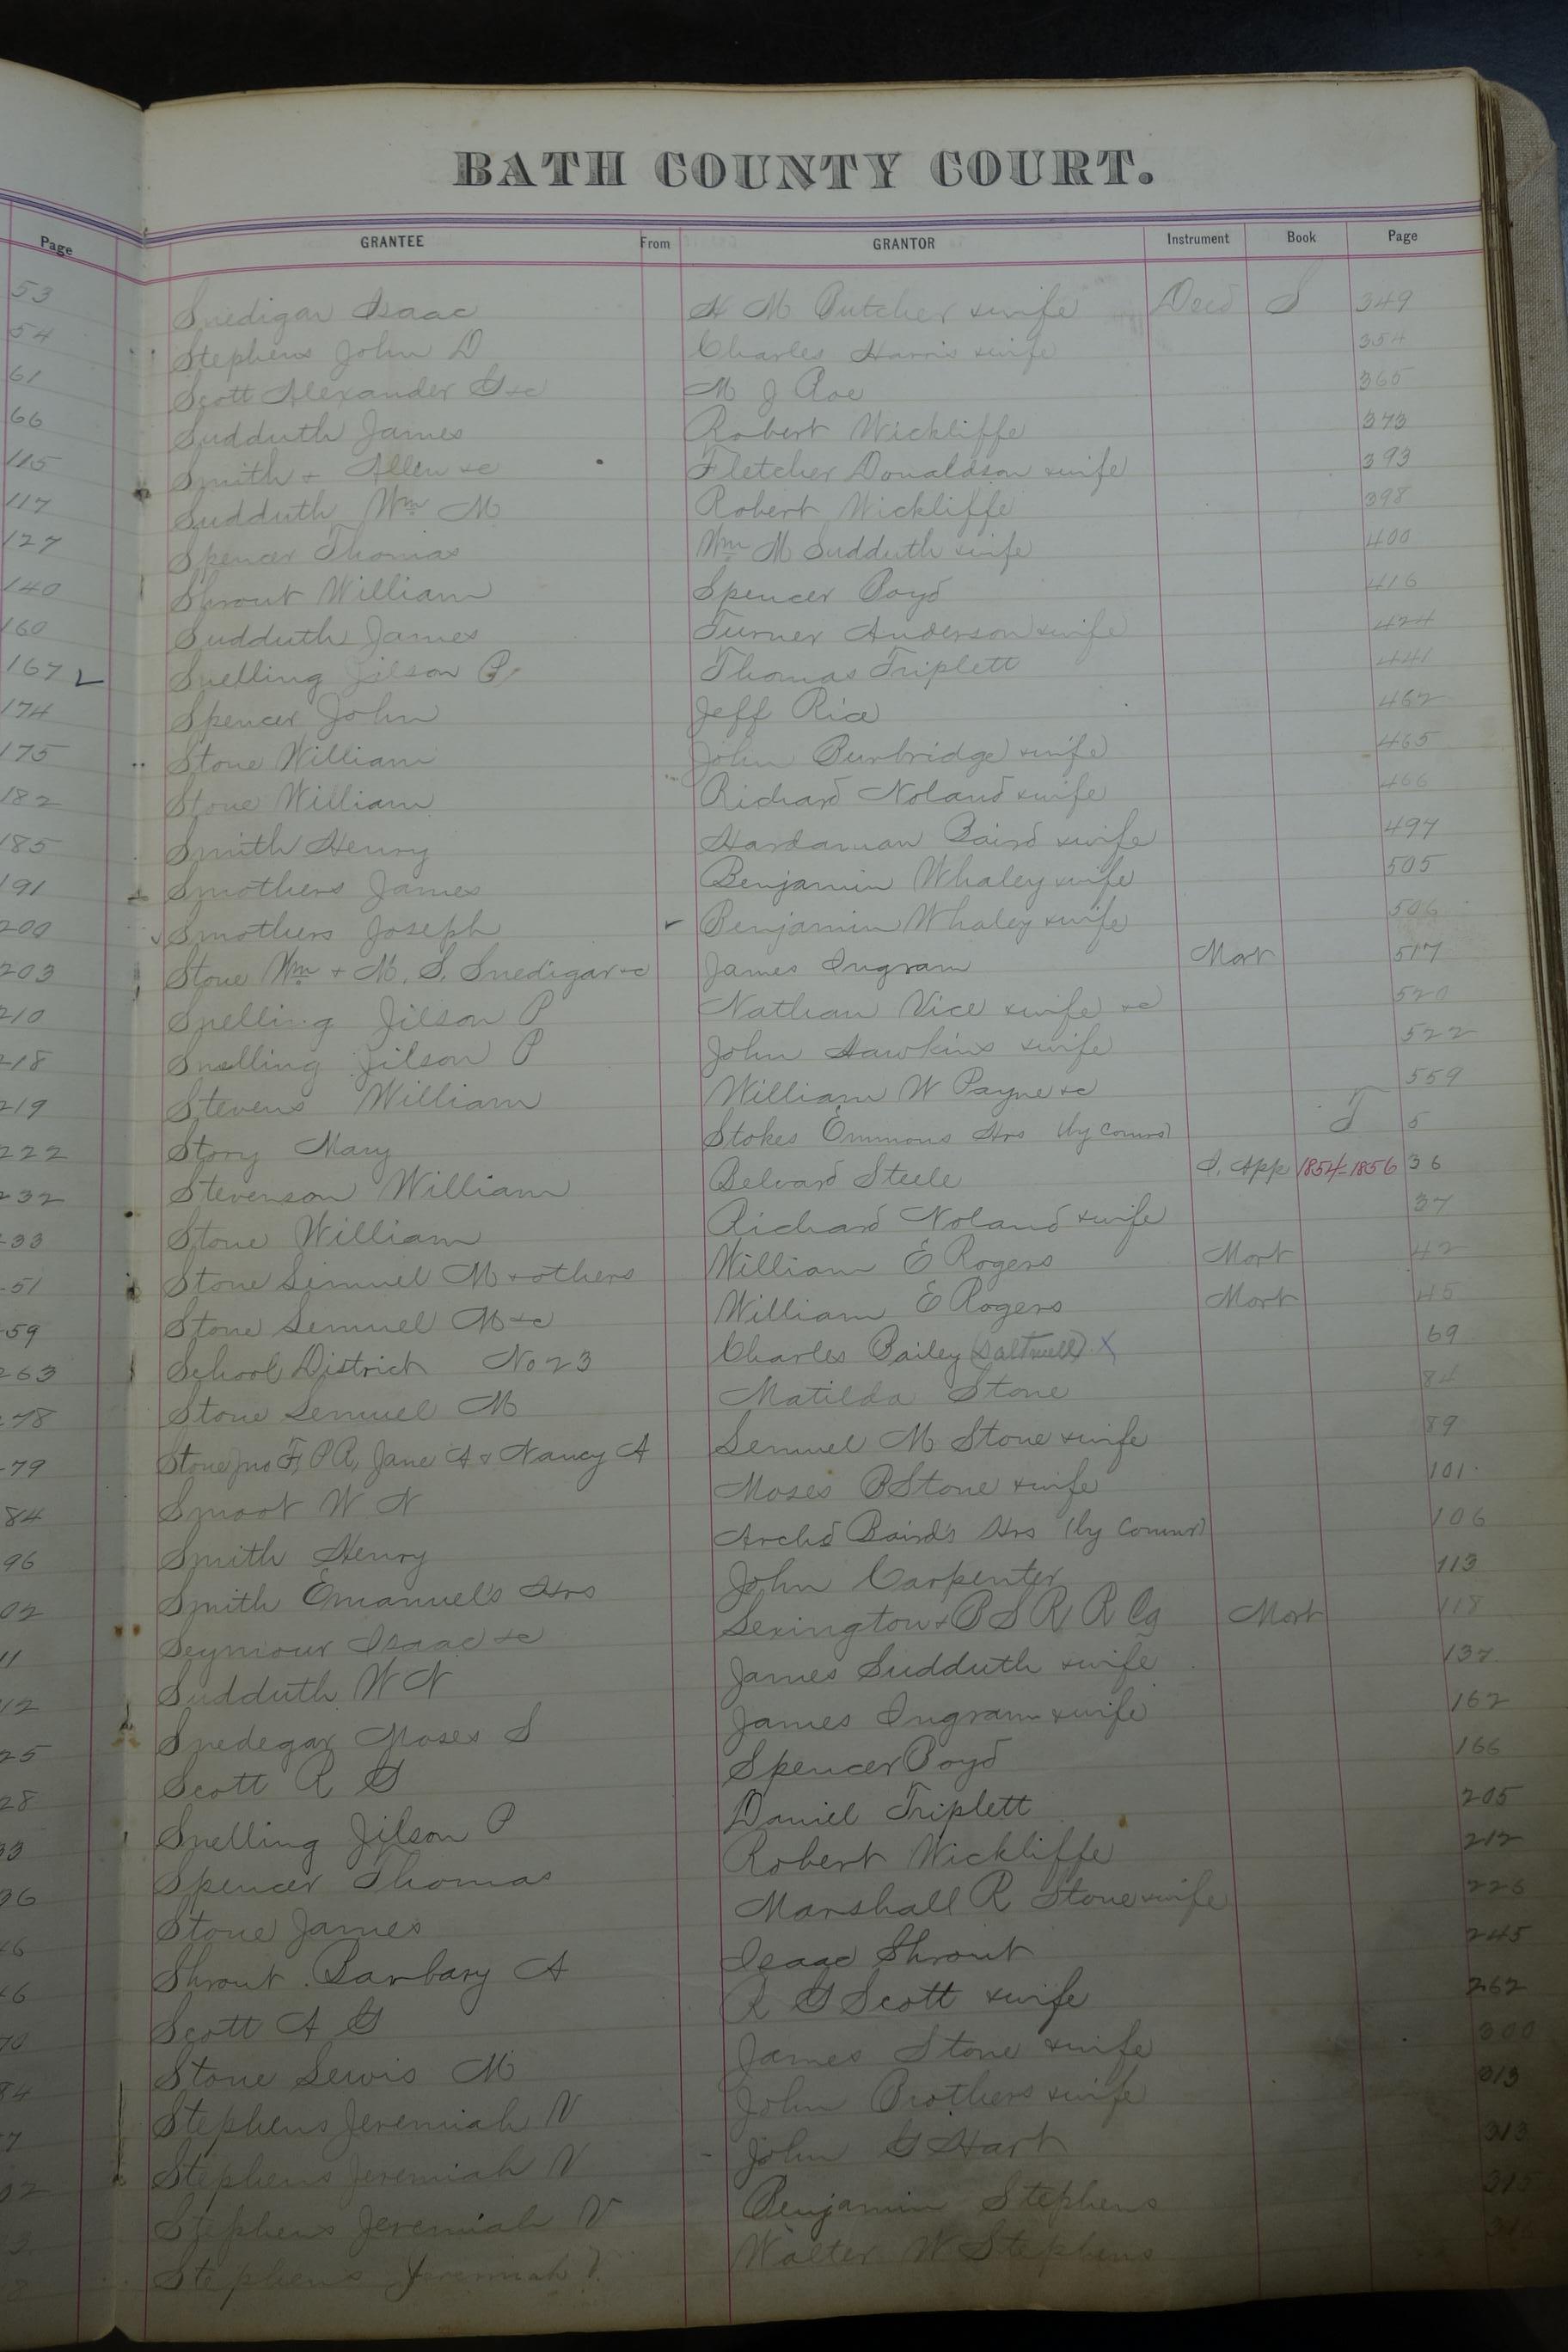 BATH COUNTY COURT.
Page GRANTEE From GRANTOR Instrument Book Page
53 Snedigar Isaac H M Butcher & wife Deed S 349
54 Stephens John D Charles Harris & wife 354
61 Scott Alexander G &c M J Roe 365
66 Sudduth James Robert Wickliffe 373
115 Smith & Allen &c Fletcher Donaldson & wife 393
117 Sudduth Wm M Robert Wickliffe 398
127 Spencer Thomas Wm M Sudduth & wife 400
140 Shrout William Spencer Boyd 416
160 Sudduth James Turner Anderson & wife 424
167 Snelling Jilson P. Thomas Triplett 441
174 Spencer John Jeff Rice 462
175 Stone William John Burbridge & wife 465
182 Stone William Richard Noland & wife 466
185 Smith Henry Hardaman Baird & wife 497
191 Smothers James Benjamin Whaley & wife 505
200 Smothers Joseph Benjamin Whaley & wife 506
203 Stone Wm & M. S. Snedigar &c James Ingram Mort 517
210 Snelling Jilson P Nathan Vice & wife &c 520
218 Snelling Jilson P John Hawkins & wife 522
219 Stevens William William W Payne &c 559
222 Story Mary Stokes Emmons Hrs (by Comrs) T 5
232 Stevenson William Belvard Steele I. App 1854-1856 36
33 Stone William Richard Noland & wife 37
51 Stone Lemuel M & others William E Rogers Mort 42
59 Stone Lemuel M &c William E Rogers Mort 45
263 School District No 23 Charles Bailey (Saltwell) X 69
78 Stone Lemuel M Matilda Stone 84
79 Stone Jno F, P R, Jane A & Nancy A Lemuel M Stone & wife 89
84 Smoot W N Moses B Stone & wife 101
96 Smith Henry Archd Baird's Hrs (by Commr) 106
02 Smith Emanuel's Hrs John Carpenter 113
11 Seymour Isaac &c Lexington & B S R R Co Mort 118
12 Sudduth W N James Sudduth & wife 137
25 Snedegar Moses S James Ingram & wife 162
28 Scott R G Spencer Boyd 166
33 Snelling Jilson P Daniel Triplett 205
36 Spencer Thomas Robert Wickliffe 212
46 Stone James Marshall R Stone & wife 226
46 Shrout Barbary A Isaac Shrout 245
70 Scott A G R G Scott & wife 262
84 Stone Lewis M James Stone & wife 300
7 Stephens Jeremiah V John Brothers & wife 313
02 Stephens Jeremiah V John G Hart 313
Stephens Jeremiah V Benjamin Stephens 315
Stephens Jeremiah V. Walter W Stephens